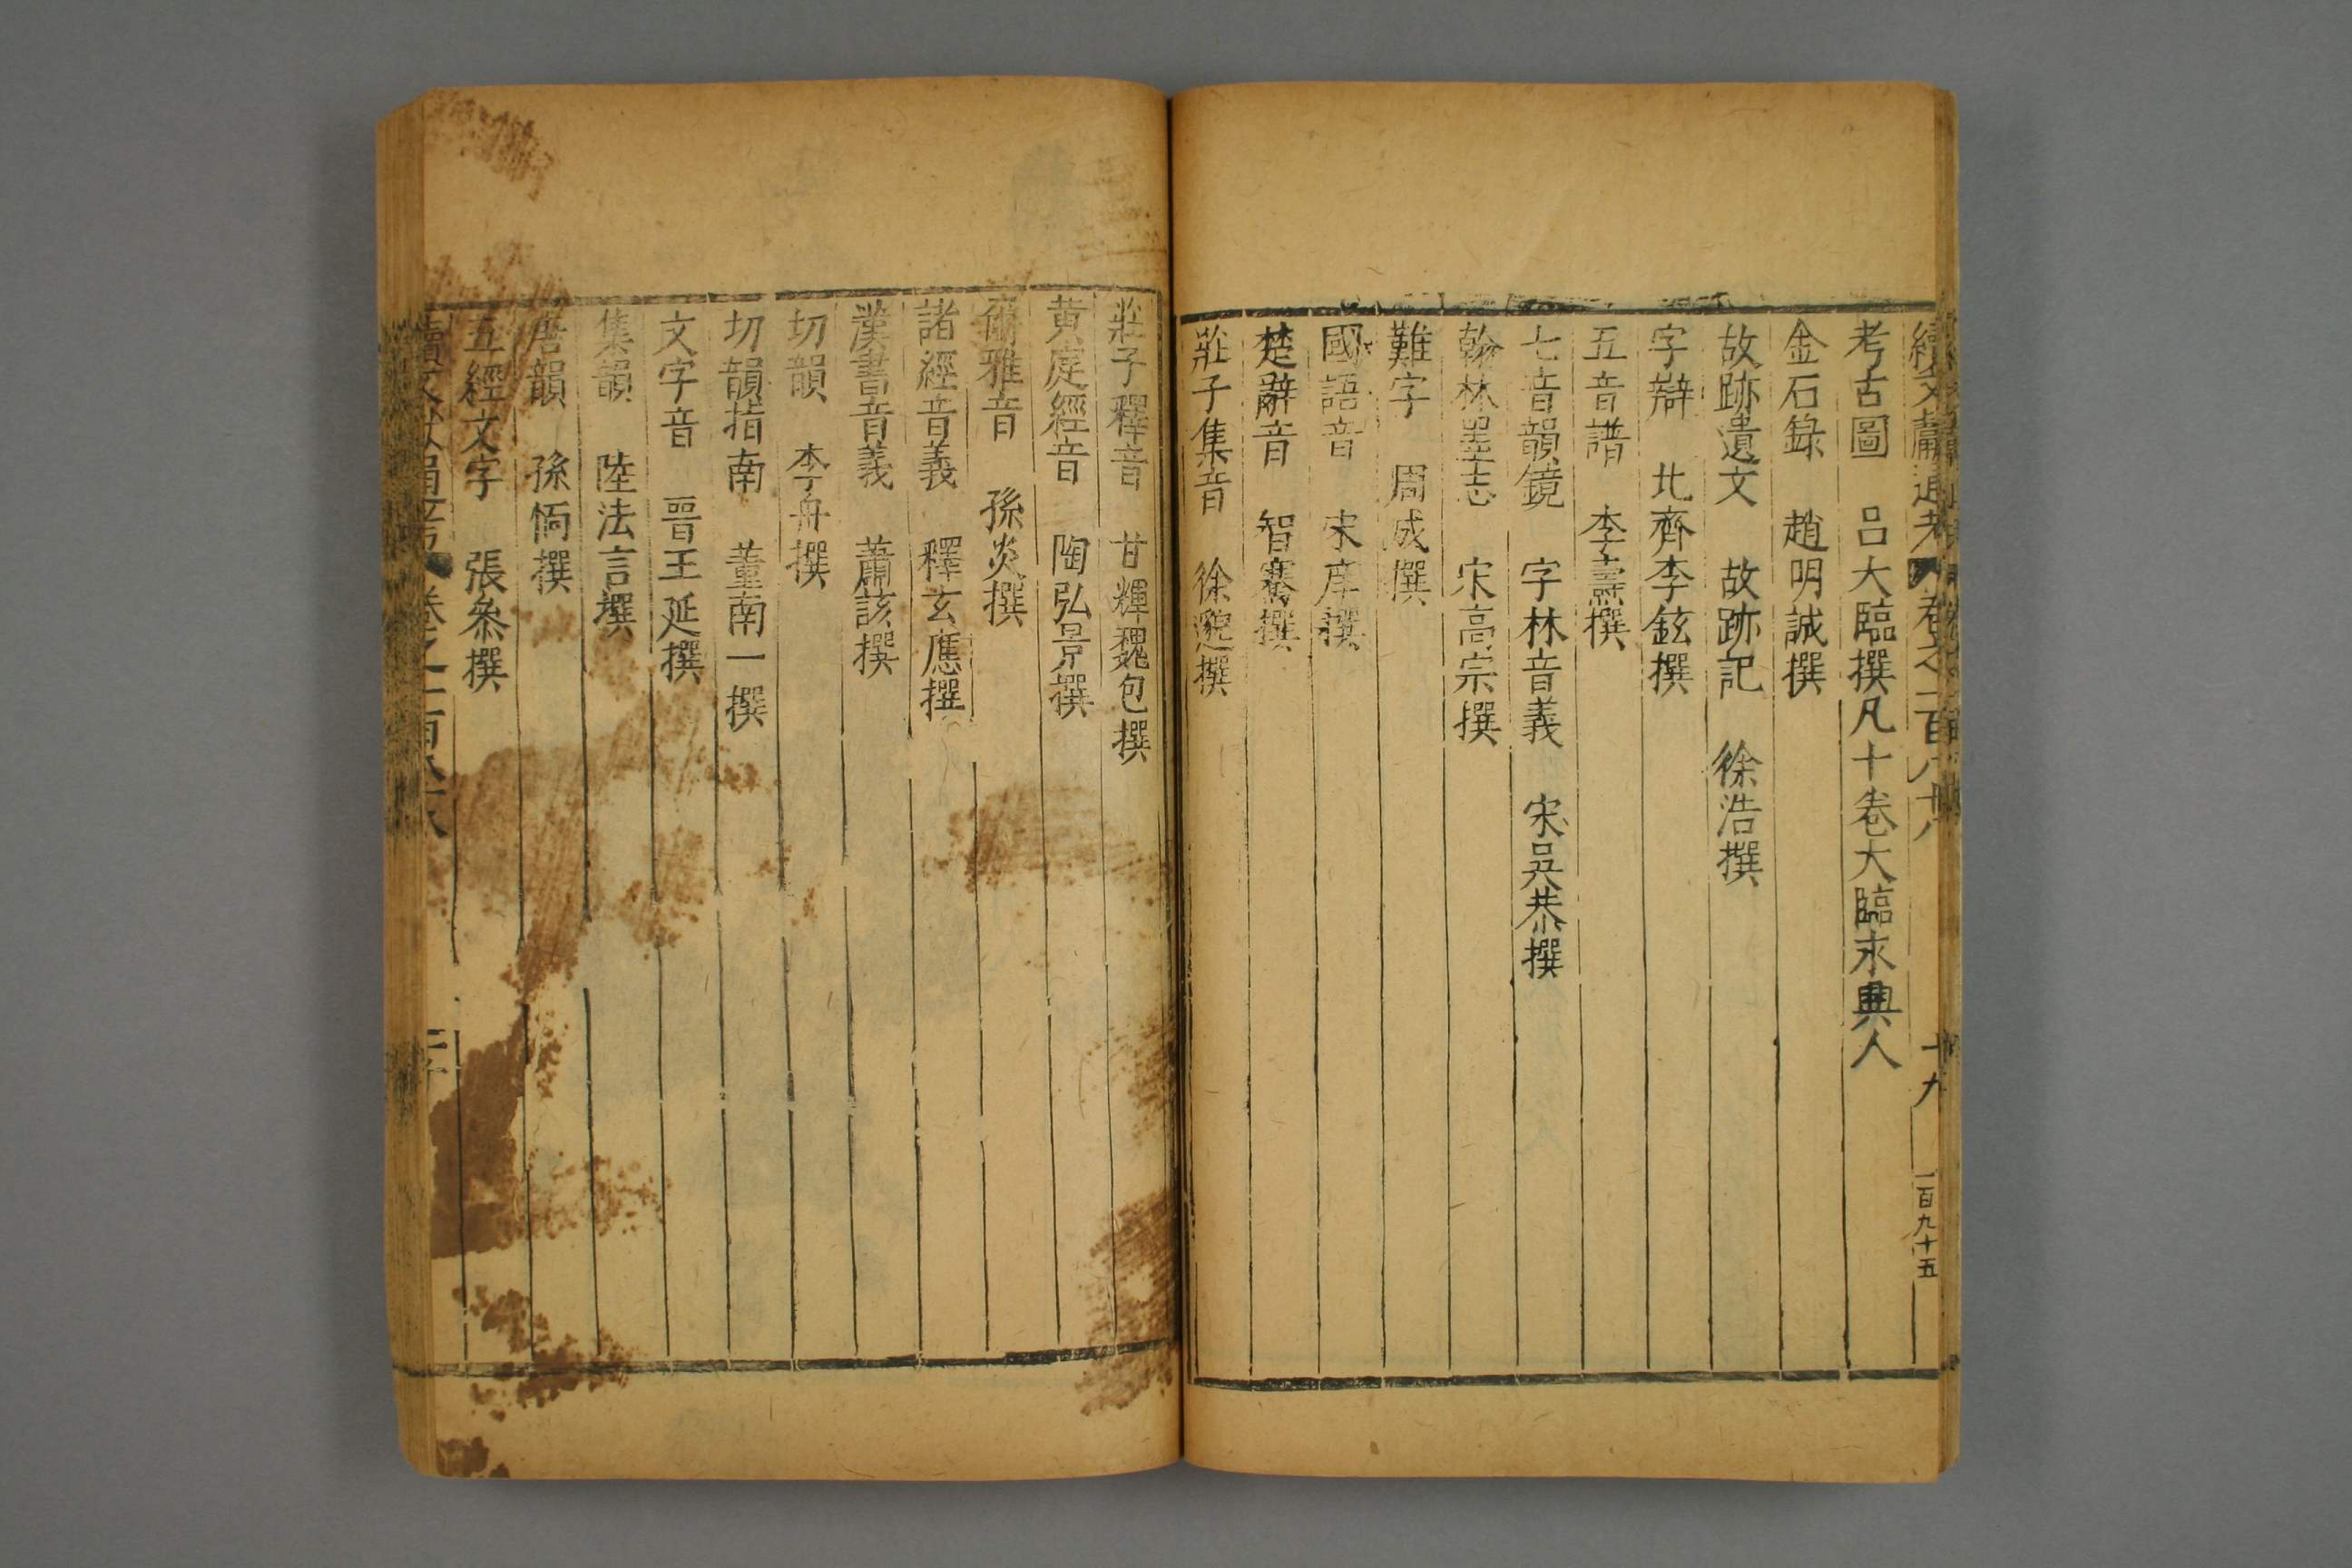 續文獻通考 卷之一百八十八 十九 一百九十五
考古圖 呂大臨撰凡十卷大臨永興人
金石錄 趙明誠撰
故跡遺文 故跡記 徐浩撰
字辯 北齊李鉉撰
五音譜 李燾撰
七音韻鏡 字林音義 宋吳恭撰
翰林墨志 宋高宗撰
難字 周成撰
國語音 宋庠撰
楚辭音 智騫撰
莊子集音 徐邈撰
莊子釋音 甘輝魏包撰
黃庭經音 陶弘景撰
爾雅音 孫炎撰
諸經音義 釋玄應撰
漢書音義 蕭該撰
切韻 李舟撰
切韻指南 董南一撰
文字音 晉王延撰
集韻 陸法言撰
唐韻 孫愐撰
五經文字 張參撰
續文獻通考 卷之一百八十八